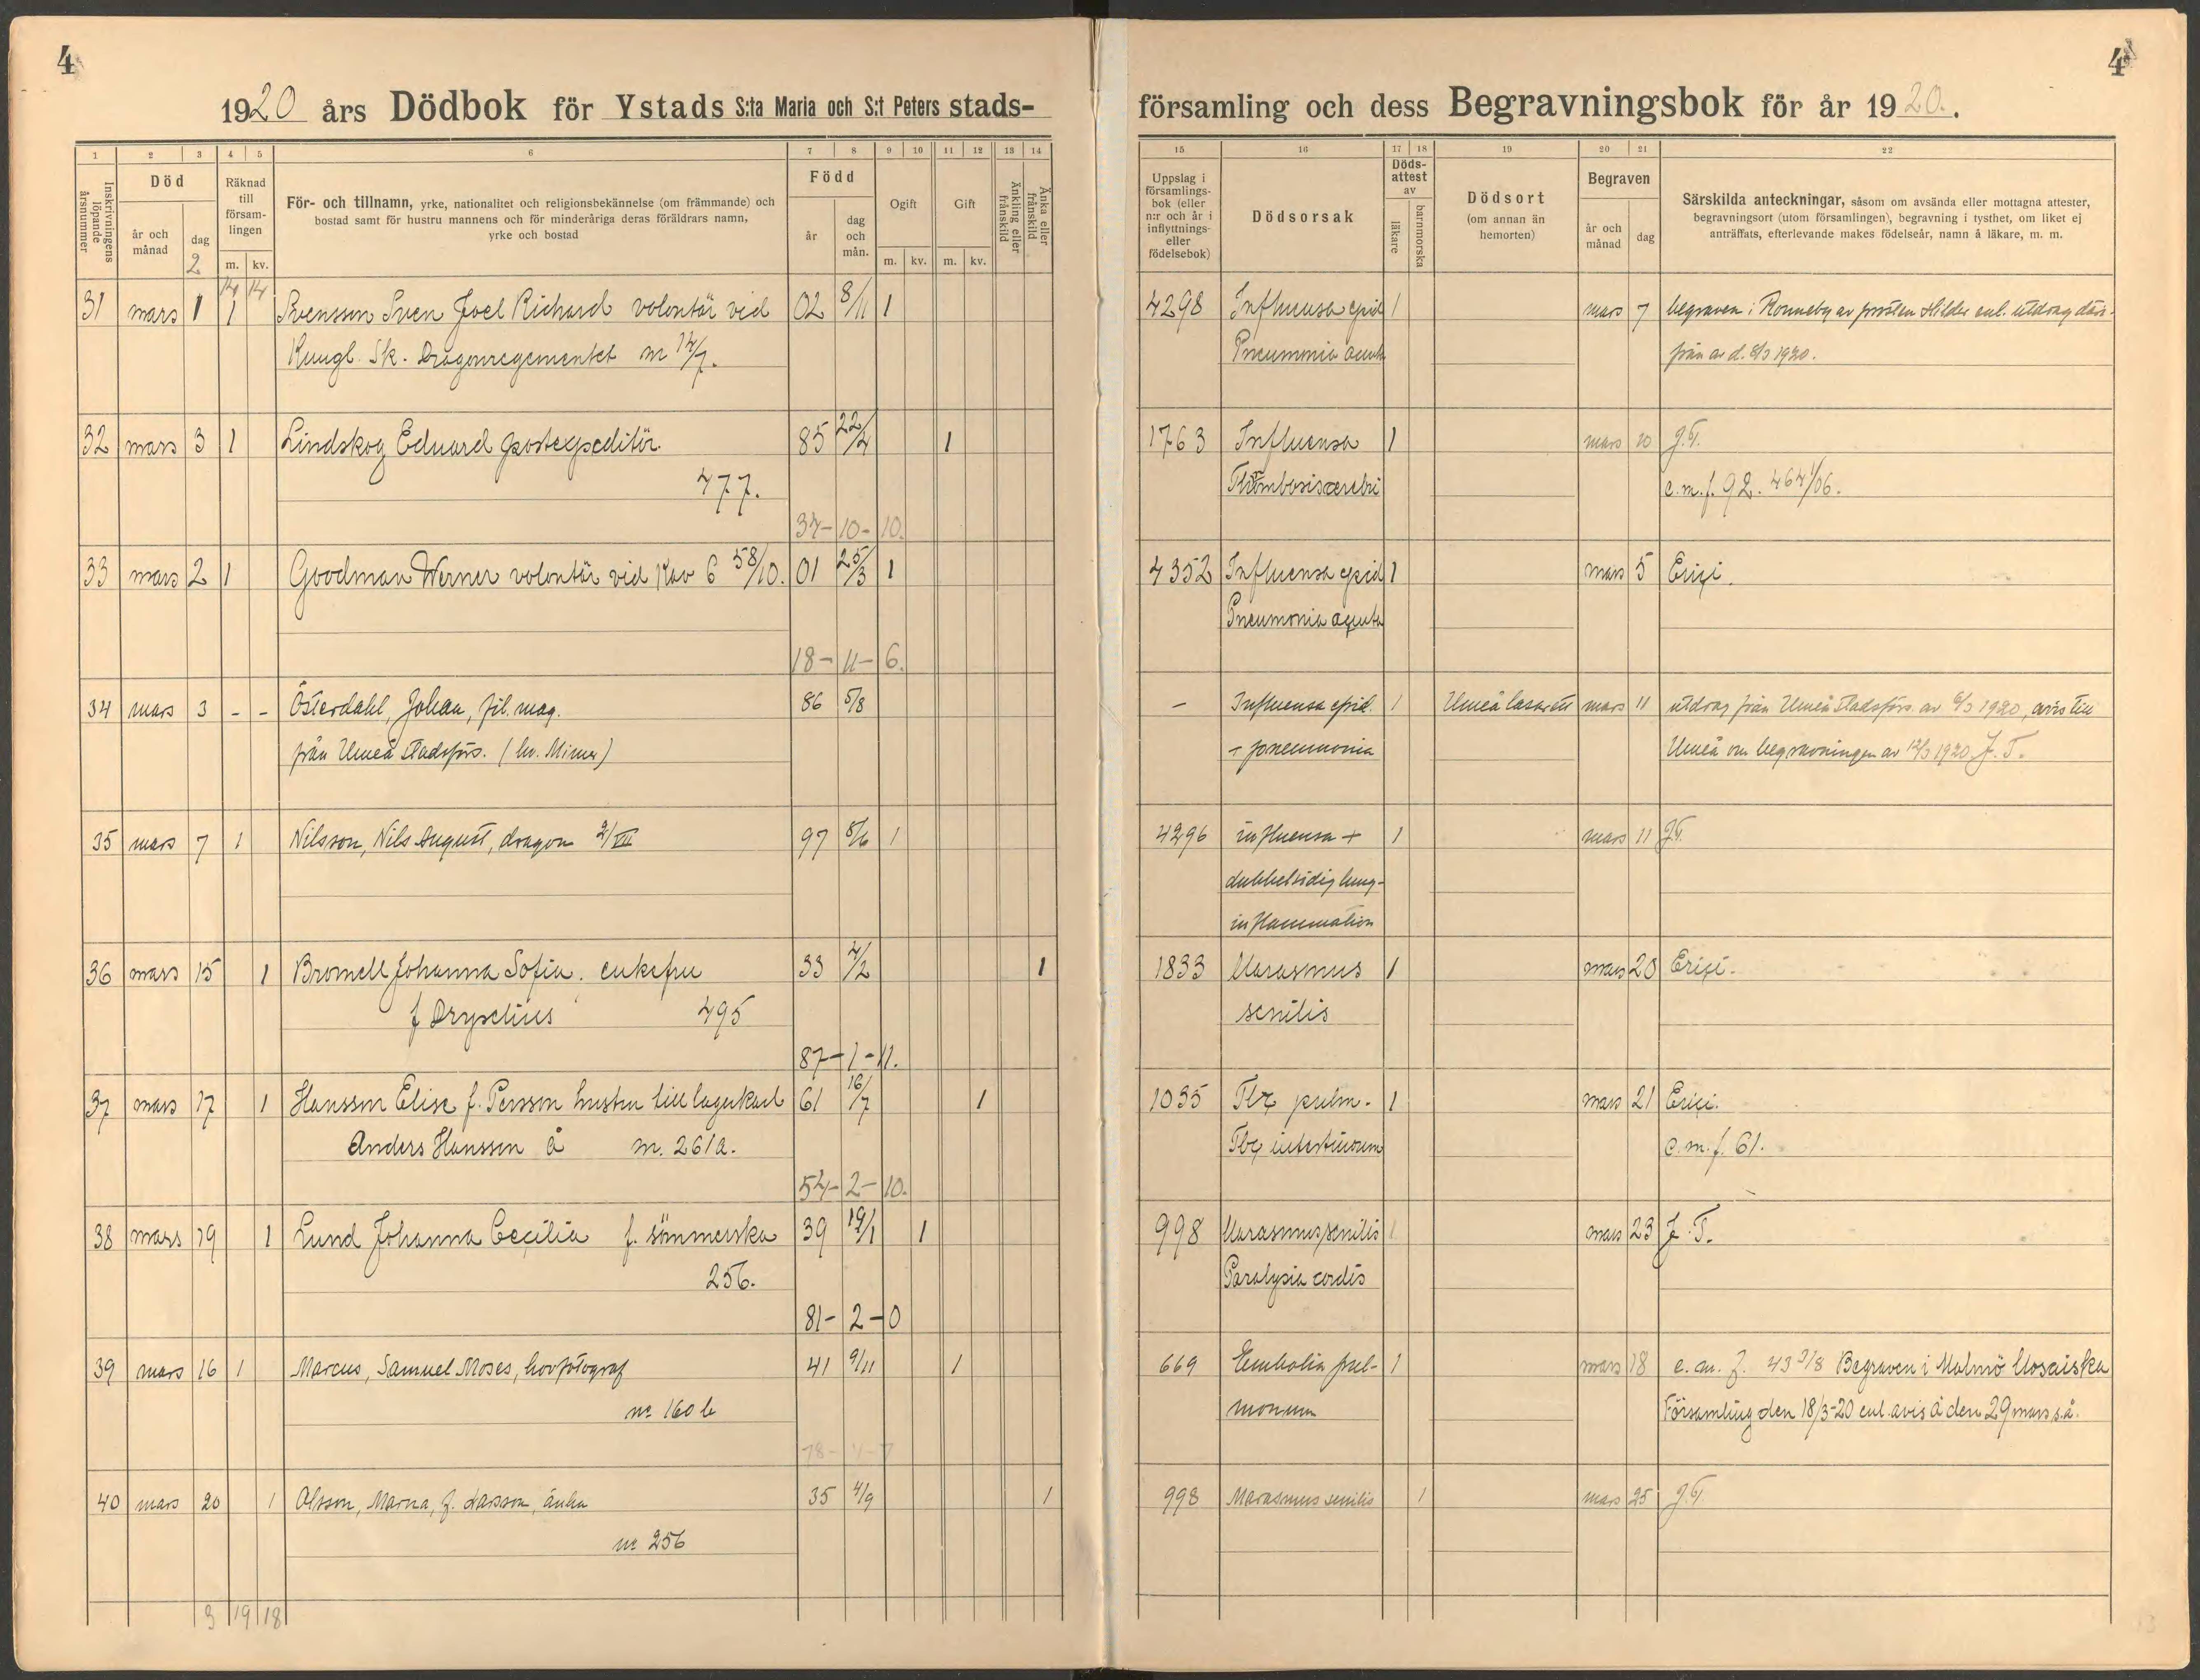 4
1920 års Dödbok för Ystads S:ta Maria och S:t Peters stads-
1 2 3 4 5 6 7 8 9 10 11 12 13 14
Inskrivningens löpande årsnummer
Död
år och månad
dag
2
Räknad till försam-lingen
m. kv.
För- och tillnamn, yrke, nationalitet och religionsbekännelse (om främmande) och
bostad samt för hustru mannens och för minderåriga deras föräldrars namn,
yrke och bostad
Född
år
dag och mån.
Ogift
m. kv.
Gift
m. kv.
Änkling eller frånskild
Änka eller frånskild
14 14
31 mars 1 1 Svensson Sven Joel Richard volontär vid 02 8/11 1
Kungl. Sk. Dragonregementet n 14/7.
32 mars 3 1 Lindskog Eduard postexpeditör 85 22/4 1
477.
34-10-10.
33 mars 2 1 Goodman Werner volontär vid Kav 6 58/10. 01 25/3 1
18-11-6.
34 mars 3 - - Österdahl, Johan, fil. mag. 86 5/8
från Umeå stadsförs. (kv. Mimer)
35 mars 7 1 Nilsson, Nils August, dragon 2/VII 97 5/6 1
36 mars 15 1 Bromell Johanna Sofia. enkefru 33 4/2 1
f Dryselius 495
87-1-11.
37 mars 17 1 Hansson Elise f. Persson hustru till lagerkarl 61 16/7 1
Anders Hansson å n. 261a.
54-2-10.
38 mars 19 1 Lund Johanna Cecilia f. sömmerska 39 19/1 1
256.
81-2-0
39 mars 16 1 Marcus, Samuel Moses, hovfotograf 41 9/11 1
no 160 b
78-4-7
40 mars 20 1 Olsson, Marna, f. Larsson, änka 35 4/9 1
no 256
3 19 18
4
församling och dess Begravningsbok för år 1920.
15 16 17 18 19 20 21 22
Uppslag i församlings-bok (eller n:r och år i inflyttnings- eller födelsebok)
Dödsorsak
Döds-attest av
läkare
barnmorska
Dödsort
(om annan än hemorten)
Begraven
år och månad
dag
Särskilda anteckningar, såsom om avsända eller mottagna attester,
begravningsort (utom församlingen), begravning i tysthet, om liket ej
anträffats, efterlevande makes födelseår, namn å läkare, m. m.
4298 Influensa epid 1 mars 7 begraven i Ronneby av prosten Hilder enl. utdrag där-
Pneumonia acuta från av d. 8/3 1920.
1763 Influensa 1 mars 10 J.T.
Thrombosis cerebri e.m.f. 92. 464 1/06.
4352 Influensa epid 1 mars 5 Erici.
Pneumonia acuta
- Influensa epid. 1 Umeå lasarett mars 11 utdrag från Umeå stadsförs. av 6/3 1920, avis till
+ pneumonia Umeå om begravningen av 12/3 1920. J. T.
4296 influensa + 1 mars 11 J.T.
dubbelsidig lung-
inflammation
1833 Marasmus 1 mars 20 Erici.
senilis
1035 Tbc pulm. 1 mars 21 Erici.
Tbc intestinorum e.m.f. 61.
998 Marasmus senilis 1 mars 23 J. T.
Paralysia cordis
669 Embolia pul- 1 mars 18 e. m. f. 43 3/8 Begraven i Malmö Mosaiska
monum Församling den 18/3-20 enl. avis å den 29 mars s.å.
998 Marasmus senilis 1 mars 25 J.T